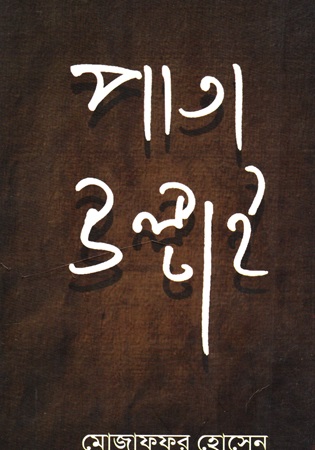 পাতা
উল্টাই
মোজাফফর হোসেন